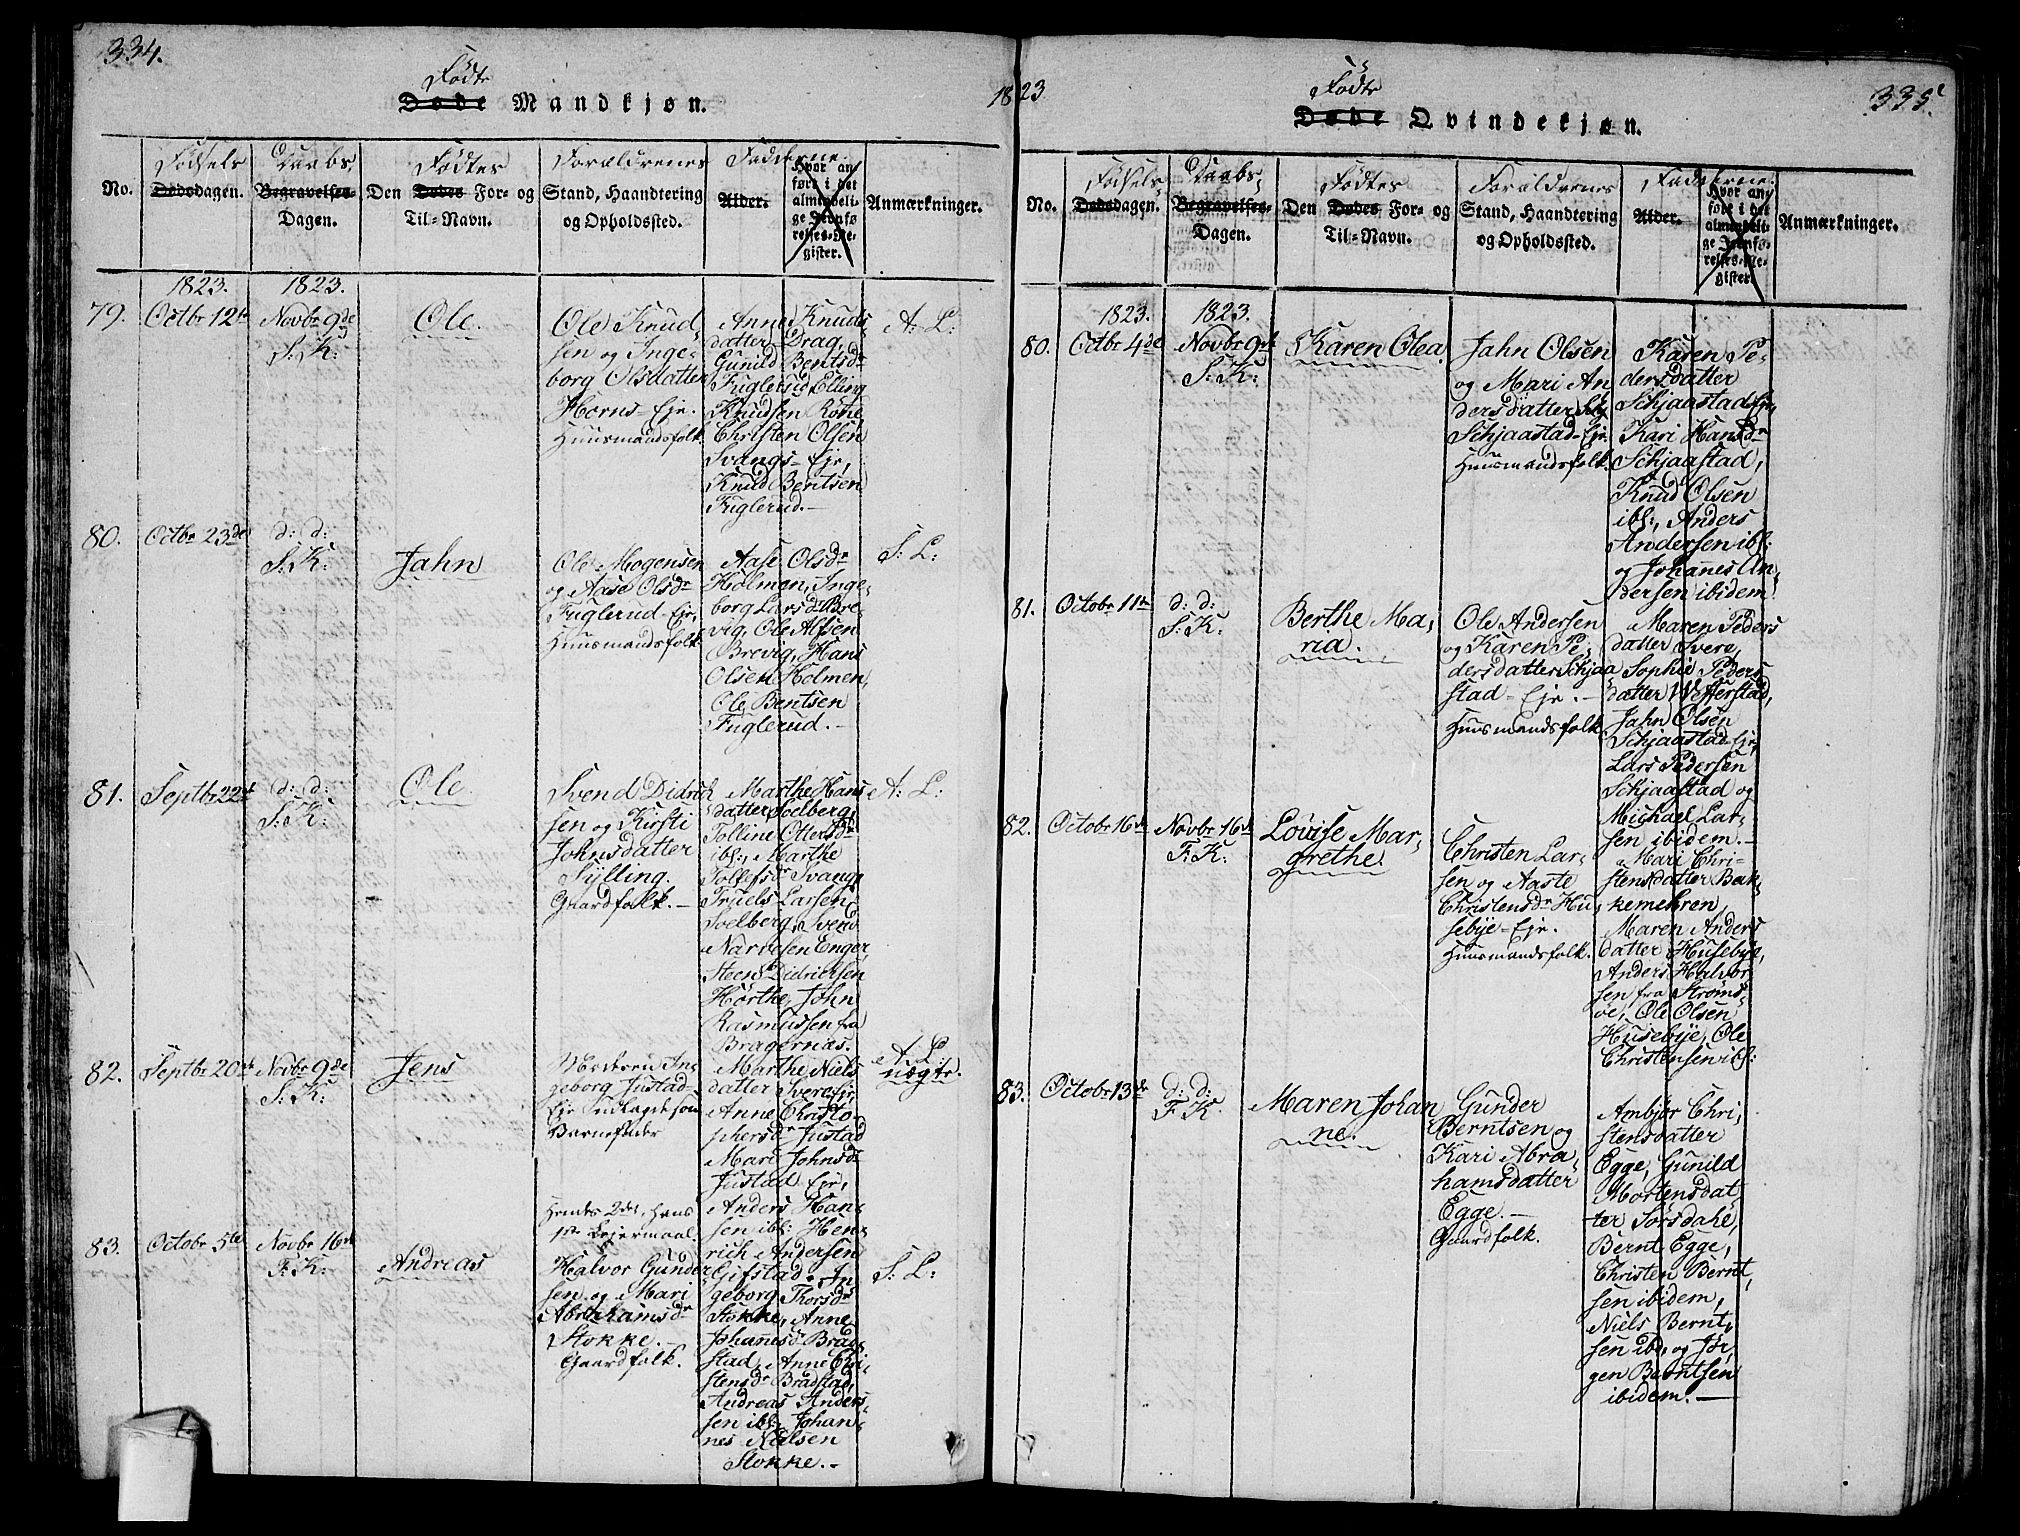 334.
Födte
Døde Mandkjøn.
No.
Fødsels
Dødsdagen.
Daabs
Begravelses-
Dagen.
Fødtes
Den Dødes For- og
Til-Navn.
Forældrenes
Stand, Haandtering
og Opholdssted.
Fadderne.
Alder.
Hvor an
ført i det
almindeli-
ge Jevnfø
relses-Re-
gister.
Anmærkninger.
1823.
1823.
79.
Octbr 12te
Novbr 9de
S: K:
Ole.
Ole Knud-
sen og Inge-
borg Olsdatter
Horns-Eje.
Huusmandsfolk
Anne Knuds
datter Drag,
Gunild Bentsdr
Fuglerud, Elling
Knudsen Röne
Christen Olsen
Svangs-Eje,
Knud Bentsen
Fuglerud.-
A: L:
80.
Octbr 23de
d: d:
S: K:
Jahn
Ole Mogensen
og Aase Olsdr
Fuglerud Eje,
Huusmandsfolk
Aase Olsdr
Holmen, Inge-
borg Larsdr Bre-
vig, Ole Alfsen
Brevig, Hans
Olsen Holmen,
Ole Bentsen
Fuglerud.-
S: L:
81.
Septbr 22de
d: d:
S: K:
Ole.
Svend Didrich
sen og Kirsti
Johnsdatter
Sylling.
Gaardfolk.-
Marthe Hans
datter Solberg,
Tolline Ottersdr
ibl:, Marthe
Tollefsdr Svang,
Truels Larsen
Solberg, Svend
Narvesen Enger,
Steen Didricsen
Hörthe, John
Rasmussen fra
Bragernæs.
A: L:
82.
Septbr 20de
Novbr 9de
S: K:
Jens
Moderen In-
geborg Justad-
Eje udlagde som
Barnefader
Hendes 2det, hans
1ste Lejermaal.
Marthe Niels
datter Svere Eje,
Anne Christo-
phersdr Justad
Mari Johnsdr
Justad Eje,
Anders Han-
sen ibl: Hen-
rich Andersen
Gifstad.
A: L:
uægte.
83.
Octobr 5te
Novbr 16de
F: K:
Andreas
Halvor Gunder
sen og Mari
Abrahamsdr
Stokke.-
Gaardfolk.
In-
geborg Thorsdr
Stokke, Anne
Johannesdr Brad-
stad, Anne Chri-
stensdr Bradstad,
Andreas Anders-
sen ibl:, Johan-
nes Nielsen
Stokke.-
S: L:
1823
335.
Födte
Døde Qvindekjøn.
No.
Fødsels
Dødsdagen.
Daabs
Begravelses-
Dagen.
Födtes
Den Dødes For- og
Til-Navn.
Forældrenes
Stand, Haandtering
og Opholdssted.
Fadderne.
Alder.
Hvor an
ført i det
almindeli-
ge Jevnfø
relses-Re-
gister.
Anmærkninger.
1823.
1823.
80.
Octbr 4de
Novbr 9de
S: K:
Karen Olea
Jahn Olsen
og Mari An
dersdatter
Schjaastad-Eje
Huusmandsfolk.
Karen Pe-
dersdatter
Schjaastad Eje,
Kari Hansdr
Schjaastad,
Knud Olsen
ibl:, Anders
Andersen ibl:
og Johannes An-
dersen ibidem.
81.
Octobr 11te
d: d:
S: K:
Berthe Ma-
ria.
Ole Andersen
og Karen Pe-
dersdatter Schjaa
stad-Eje.-
Huusmandsfolk.
Maren Peders
datter Svere,
Sophie Peders
datter Wefferstad,
Jahn Olsen
Schjaastad Eje,
Lars Pedersen
Schjaastad og
Michael Lar-
sen ibidem.-
82.
Octobr 16de
Novbr 16de
F: K:
Lovise Mar-
grethe.
Christen Lar-
sen og Aaste
Christensdr Hu-
sebye-Eje.
Huusmandsfolk.
Mari Chri-
stensdatter Bak-
kemehren,
Maren Anders
datter Husebye,
Anders Halvor
sen fra Ströms-
öe, Ole Olsen
Husebye, Ole
Christensen ibl:
83.
Octobr 13de
d: d:
F: K:
Maren Johan
ne.
Gunder
Berntsen og
Kari Abra-
hamsdatter
Egge.-
Gaardfolk.
Ambjör Chri-
stensdatter
Egge, Gunild
Mortensdat
ter Sörsdahl,
Bernt Egge,
Christen Bernt-
sen ibidem,
Niels Bernt-
sen ibd. og Jör-
gen Berntsen
ibidem.-